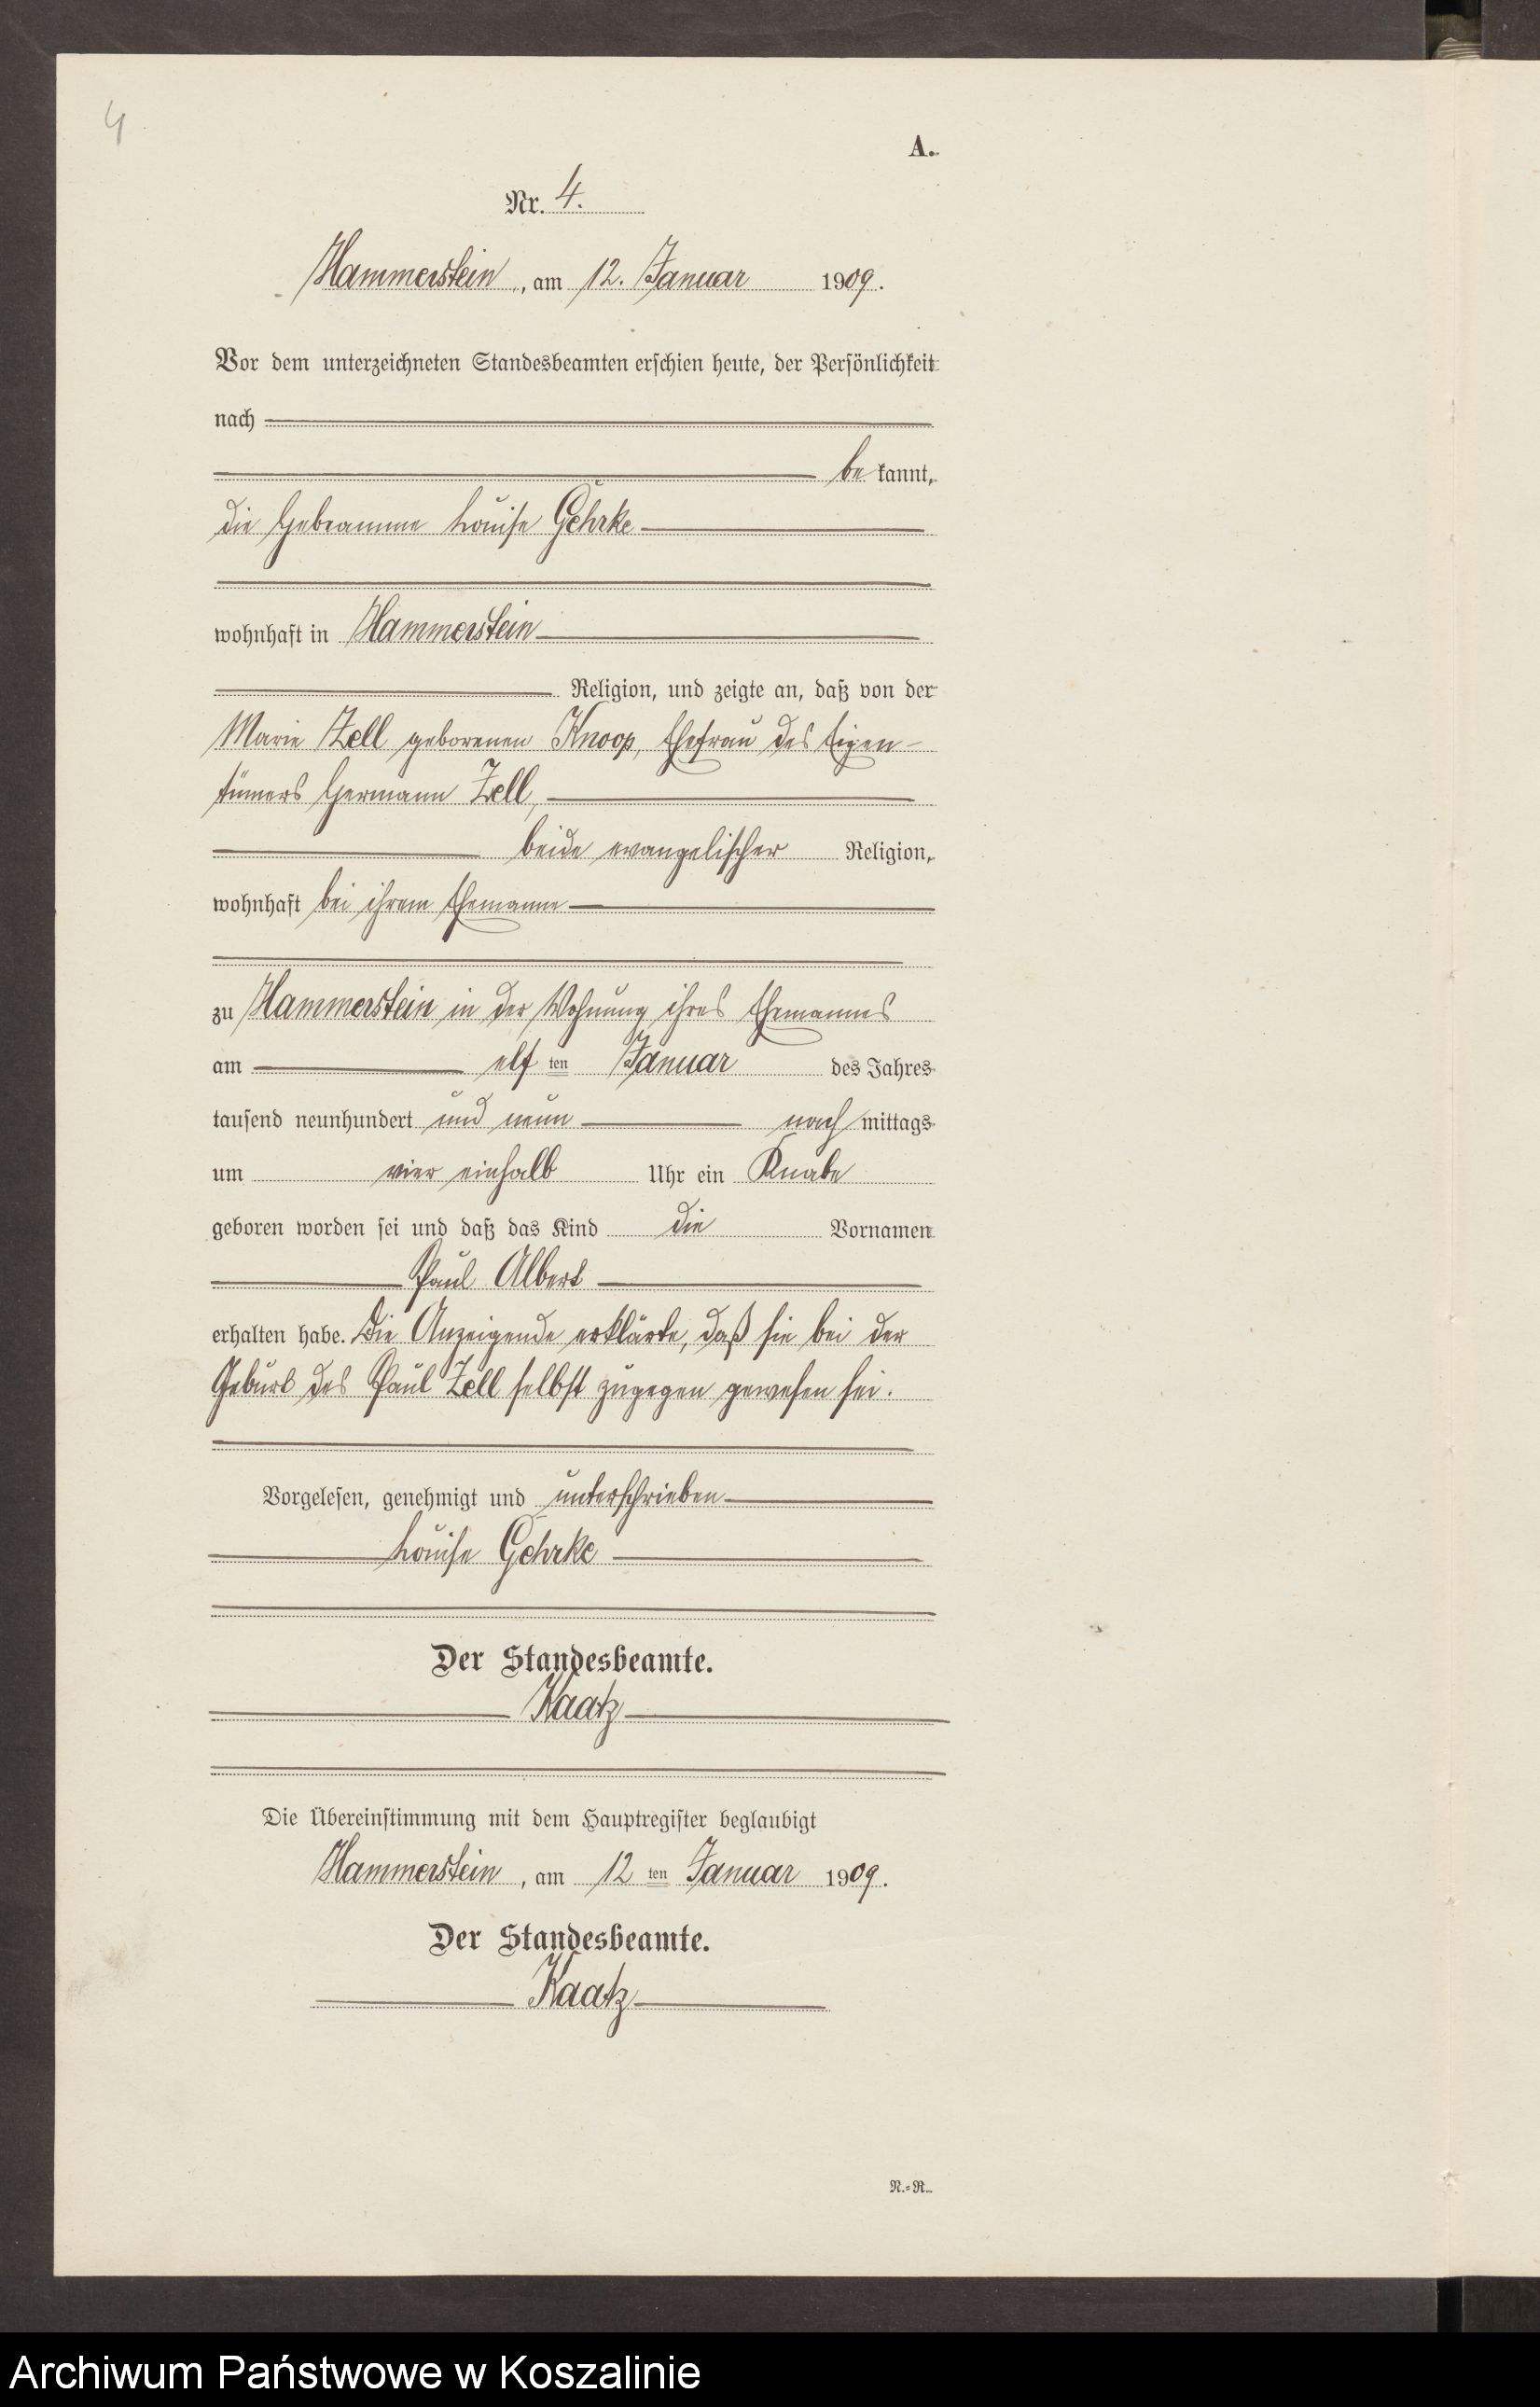 4
A.
Nr. 4.
Hammerstein, am 12. Januar 1909.
Vor dem unterzeichneten Standesbeamten erschien heute, der Persönlichkeit
nach
be kannt,
die Hebeamme Louise Gehrke
wohnhaft in Hammerstein
Religion, und zeigte an, daß von der
Marie Zell geborenen Knoop, Ehefrau des Eigen-
tümers Hermann Zell,
beide evangelischer Religion,
wohnhaft bei ihrem Ehemanne
zu Hammerstein in der Wohnung ihres Ehemannes
am elf ten Januar des Jahres
tausend neunhundert und neun nach mittags
um vier einhalb Uhr ein Knabe
geboren worden sei und daß das Kind die Vornamen
Paul Albert
erhalten habe. Die Anzeigende erklärte, daß sie bei der
Geburt des Paul Zell selbst zugegen gewesen sei.
Vorgelesen, genehmigt und unterschrieben
Louise Gehrke
Der Standesbeamte.
Kaatz
Die Übereinstimmung mit dem Hauptregister beglaubigt
Hammerstein, am 12 ten Januar 1909.
Der Standesbeamte.
Kaatz
N.=R.
Archiwum Państwowe w Koszalinie